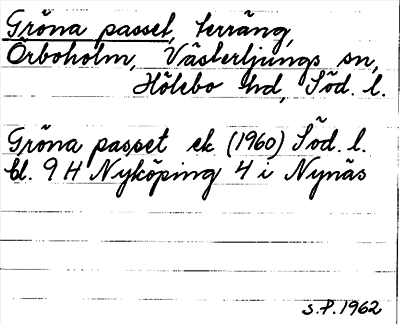 Gröna passet, terräng,
Orboholm, Västerljungs sn,
Hölebo hd, Söd. l.
Gröna passet ek (1960) Söd. l.
bl. 9 H Nyköping 4 i Nynäs
S.P. 1962